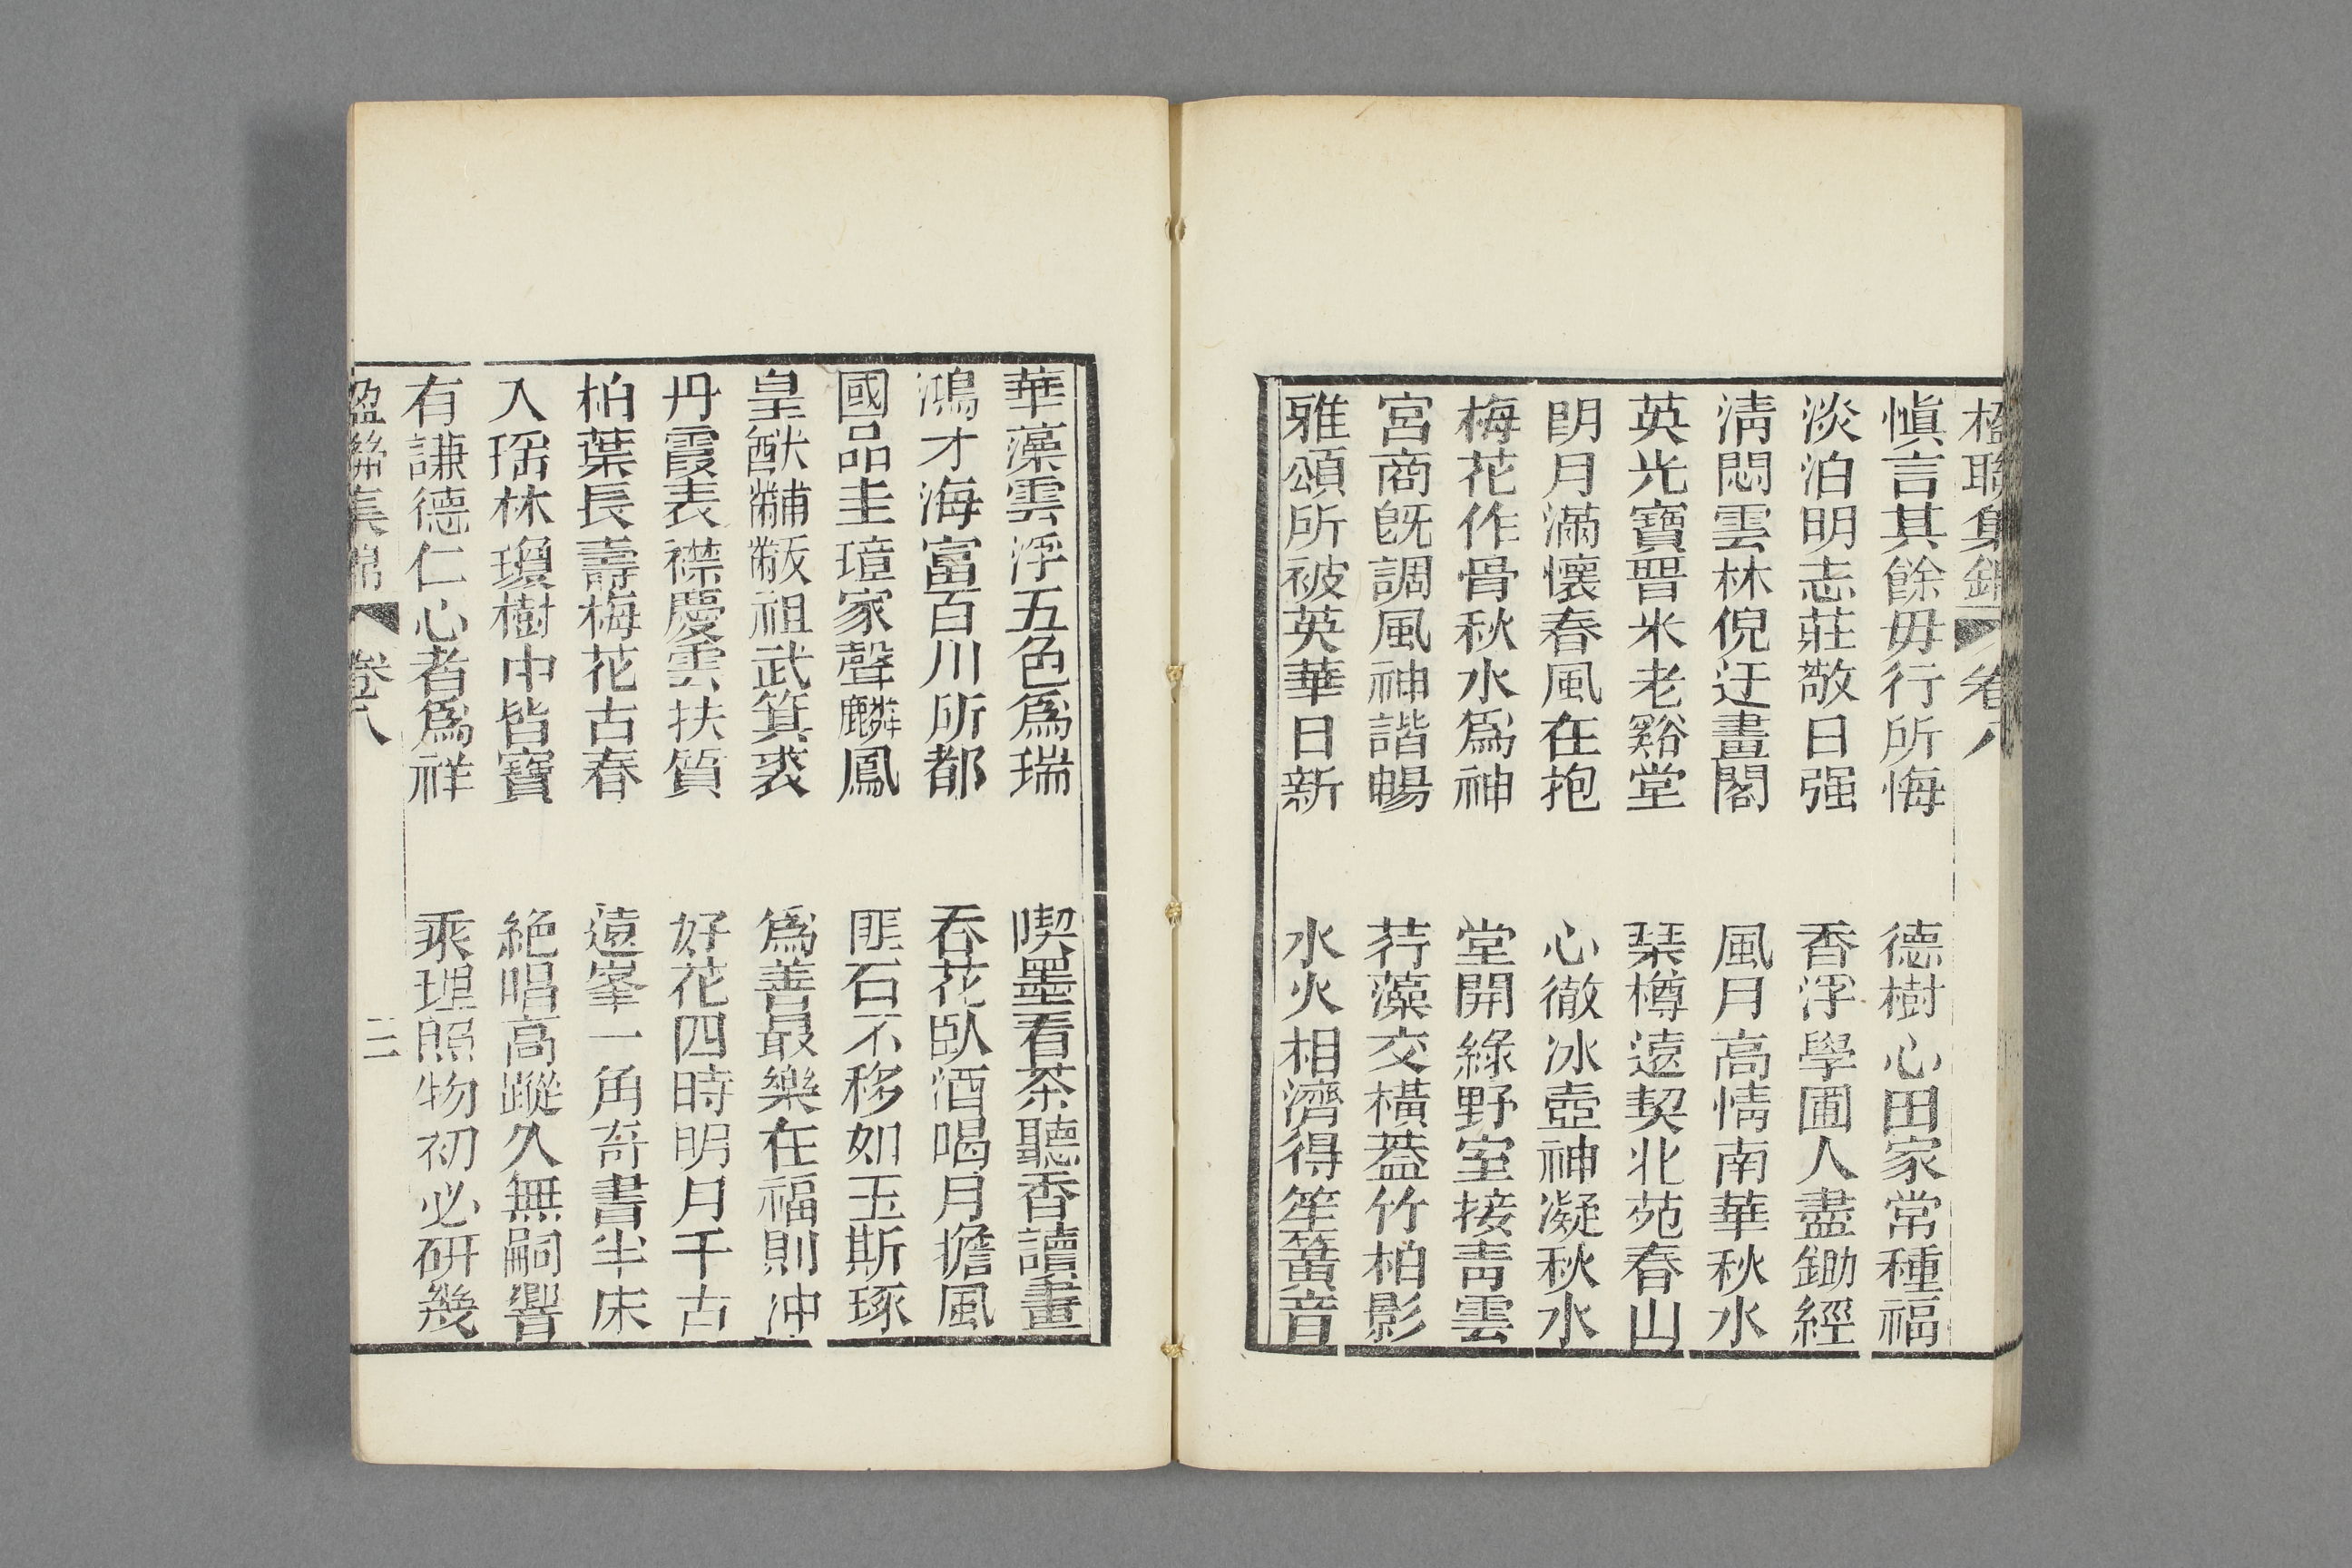 楹聯集錦 卷八
愼言其餘毋行所悔 德樹心田家常種福
淡泊明志莊敬日强 香浮學圃人盡鋤經
淸閟雲林倪迂畫閣 風月高情南華秋水
英光寶晋米老谿堂 琹樽遠契北苑春山
明月滿懷春風在抱 心徹冰壺神凝秋水
梅花作骨秋水爲神 堂開綠野室接靑雲
宮商旣調風神諧暢 荇藻交橫葢竹柏影
雅頌所被英華日新 水火相濟得笙簧音
華藻雲浮五色爲瑞 喫墨看茶聽香讀畫
鴻才海富百川所都 吞花臥酒喝月擔風
國品圭璋家聲麟鳳 匪石不移如玉斯琢
皇猷黼黻祖武箕裘 爲善最樂在福則沖
丹霞表襟慶雲扶質 好花四時明月千古
柏葉長壽梅花古春 遠峯一角奇書半床
入瑤林瓊樹中皆寶 絕唱高蹤久無嗣響
有謙德仁心者爲祥 乘理照物初必研幾
楹聯集錦 卷八 二